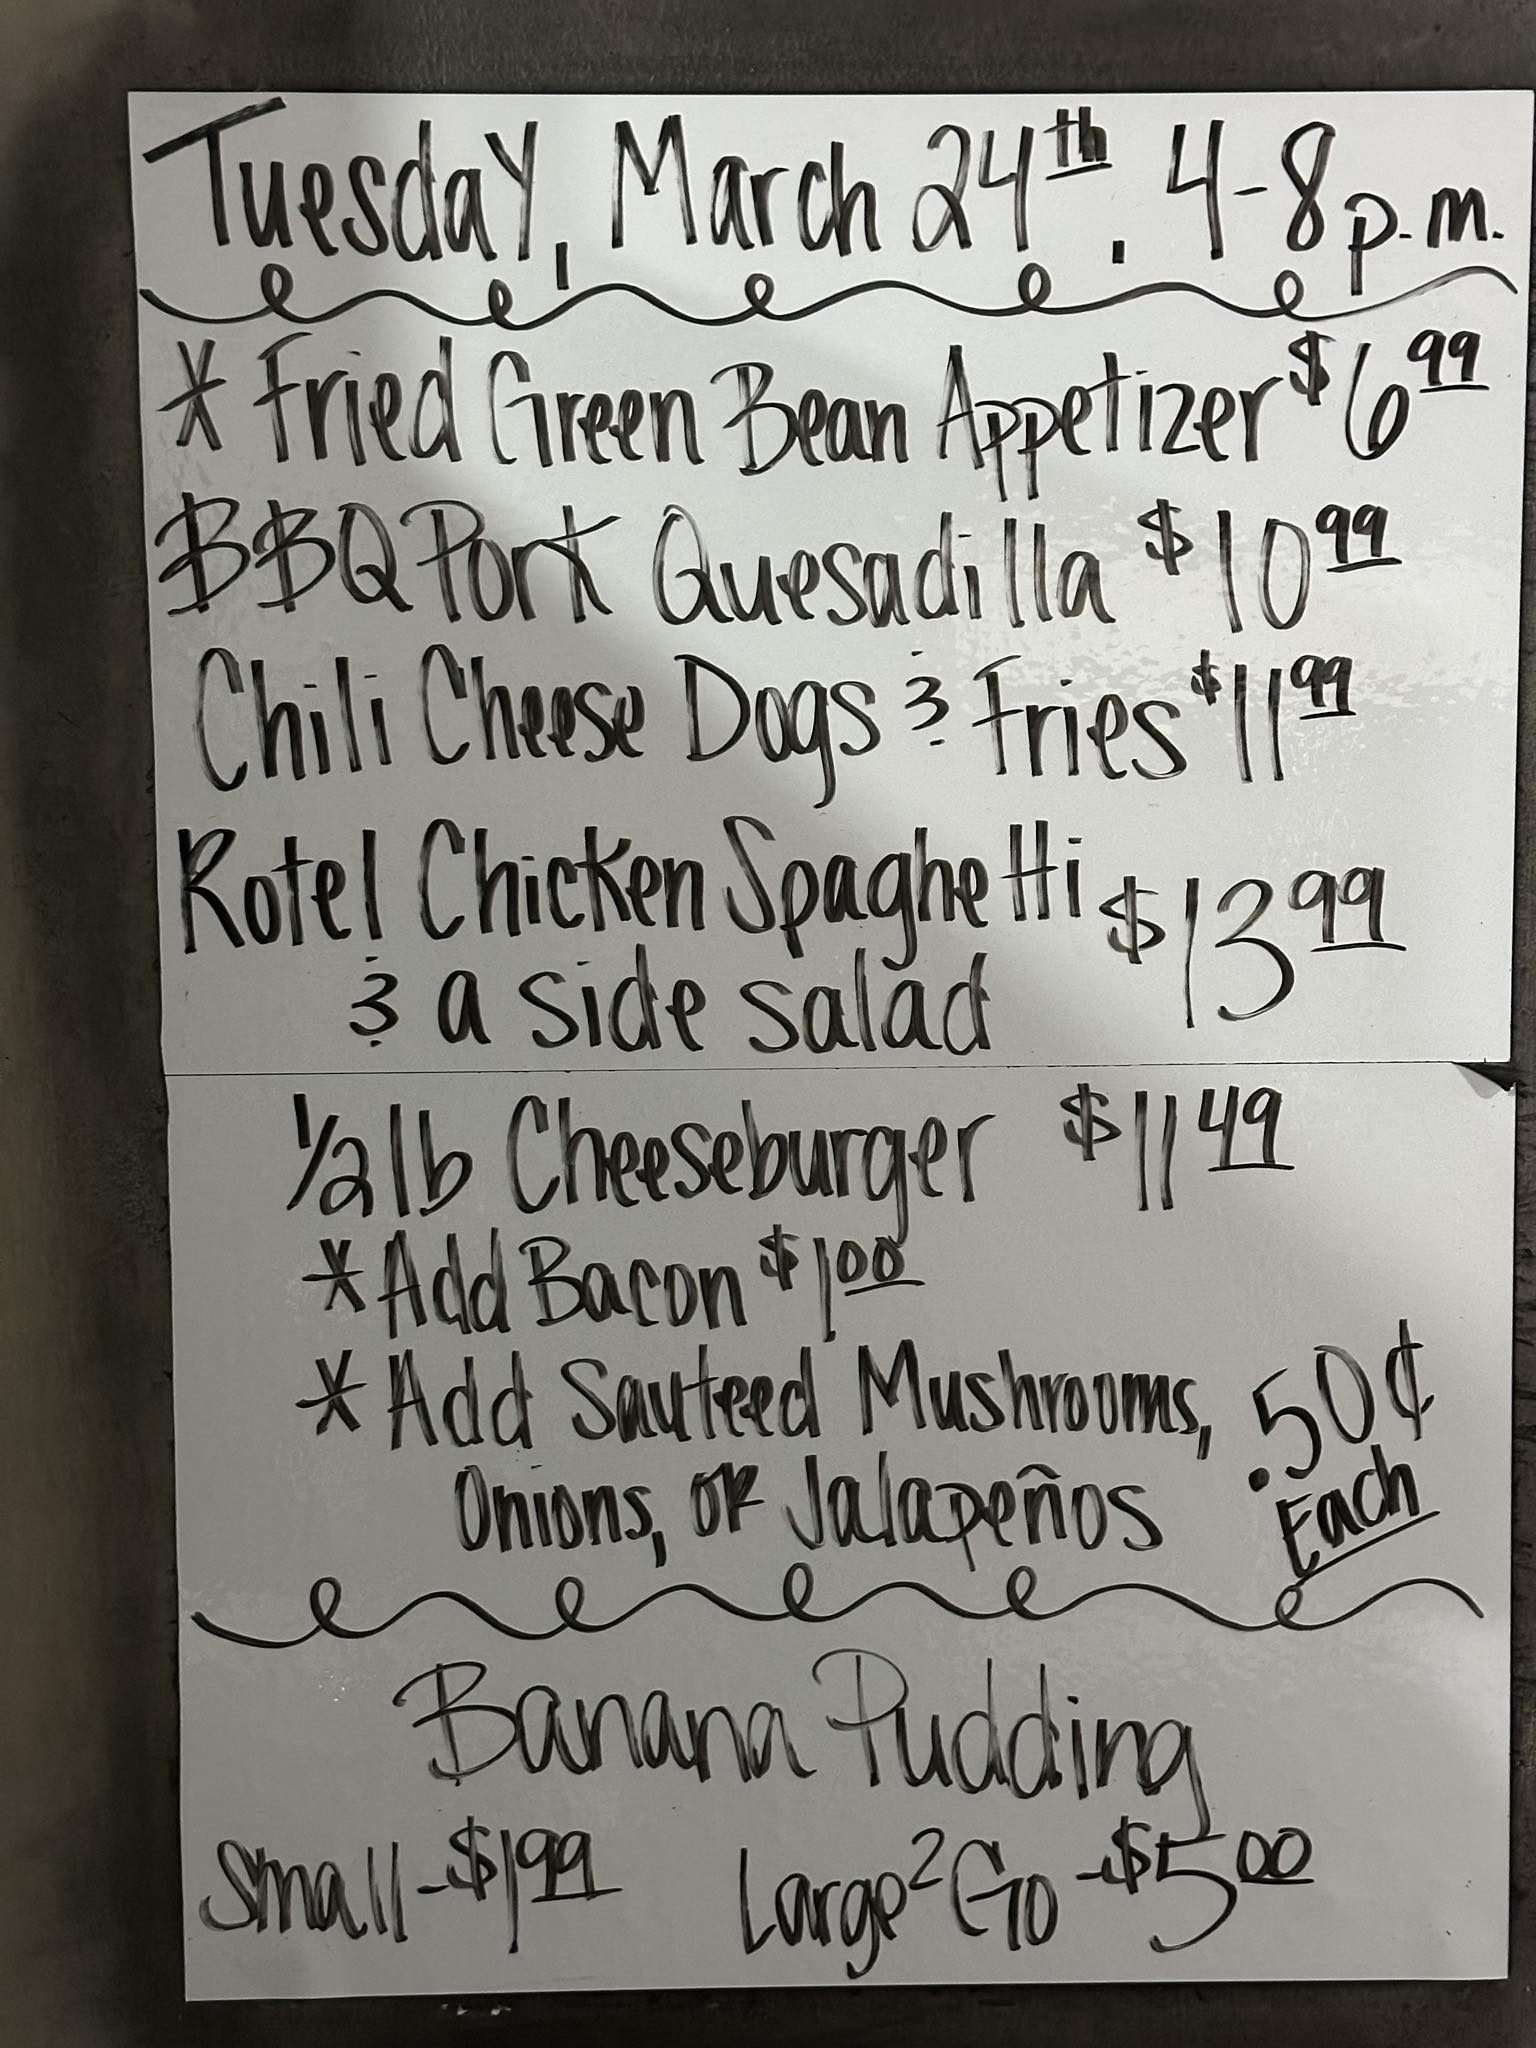 Tuesday, March 24th. 4-8p.m.
* Fried Green Bean Appetizer $6.99
BBQ Pork Quesadilla $10.99
Chili Cheese Dogs & Fries $11.99
Rotel Chicken Spaghetti $13.99
& a side salad
1/2 lb Cheeseburger $11.49
* Add Bacon $1.00
* Add Sauteed Mushrooms, .50¢
Onions, or Jalapeños Each
Banana Pudding
Small - $1.99 Large 2 Go - $5.00